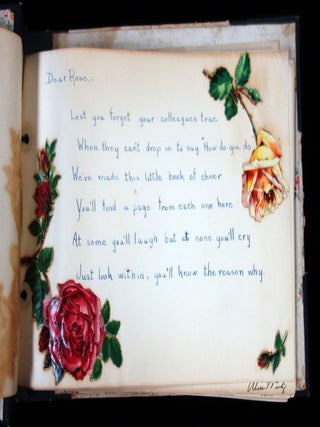 Dear Rose,..
Lest you forget your colleagues true
When they can't drop in to say "How do you do
We've made this little book of cheer
You'll find a page from each one here
At some you'll laugh but at none you'll cry
Just look within, you'll know the reason why.